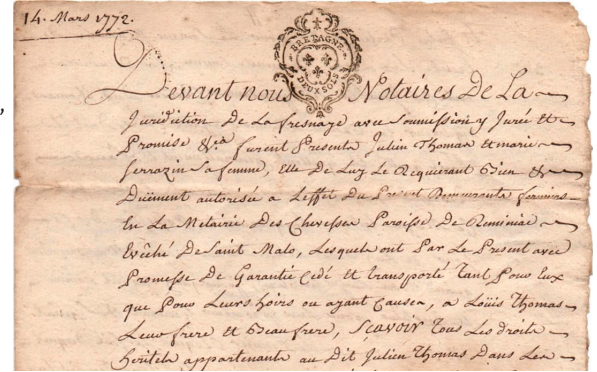 14. Mars 1772.
BRETAGNE
DEUX SOLS
Devant nous Notaires De La
Juridiction De La fresnaye avec Soumission y Jurée Et
Promise &ca furent Presents Julien Thomas et marie
Serrazin Sa femme, Elle De Luy Le Requerant Bien &
Duëment autorisée a Leffet Du Present Demeurants fermiers
En La Metairie Des Chevesses Paroisse De Reminiac
Evêché De Saint Malo, Lesquels ont Par Le Present avec
Promesse De Garantie Cedé et transporté Tant Pour Eux
que Pour Leurs hoirs ou ayant Causes, a Loüis Thomas
Leur frere et Beau frere, Sçavoir Tous Les Droits
heritels appartenants au Dit Julien Thomas Dans Les